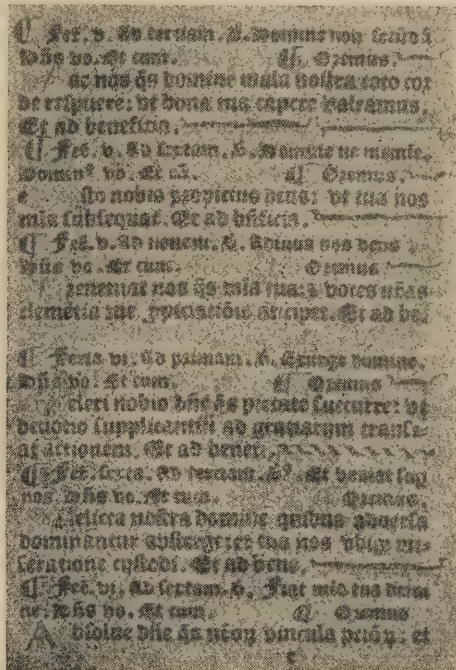 ¶ Fer. v. Ad tertiam. Domine non secundū
Dñs vo. Et cum. ¶ Oremus.
ac nos q̄s domine mala nostra toto cor
de respuere: vt bona tua capere valeamus.
Et ad benefitia.
¶ Fer. v. Ad sextam. Domine ne memi.
Domin⁹ vo. Et cū. ¶ Oremus.
e sto nobis propicius deus: vt tua nos
mīa subsequat. Et ad bn̄ficia.
¶ Fer. v. Ad nonam. Adiuua nos deus
Dñs vo. Et cum. Oremus
nos q̄s mīa tua: z voces nr̄as
clemētia tue ppiciatiōis anticipet. Et ad
¶ Feria vi. Ad primam. Exurge domine.
Dñs vo. Et cum. ¶ Oremus
nobis dñe q̄s pietate succurre: vt
deuotio supplicantiū ad gratiarum transe-
at actionem. Et ad benefi.
¶ Fer. sexta. Ad tertiam. Et veniat sup
nos. Dñs vo. Et cum. Oremus.
delicta nostra domine quibus aduersa
dominantur absterge: et tua nos vbiqz mi-
seratione custodi. Et ad bene.
¶ Fer. vi. Ad sextam. Fiat mīa tua domi
ne: Dñs vo. Et cum. ¶ Oremus
A bsolue dñe q̄s nr̄oꝝ vincula pctōꝝ: et